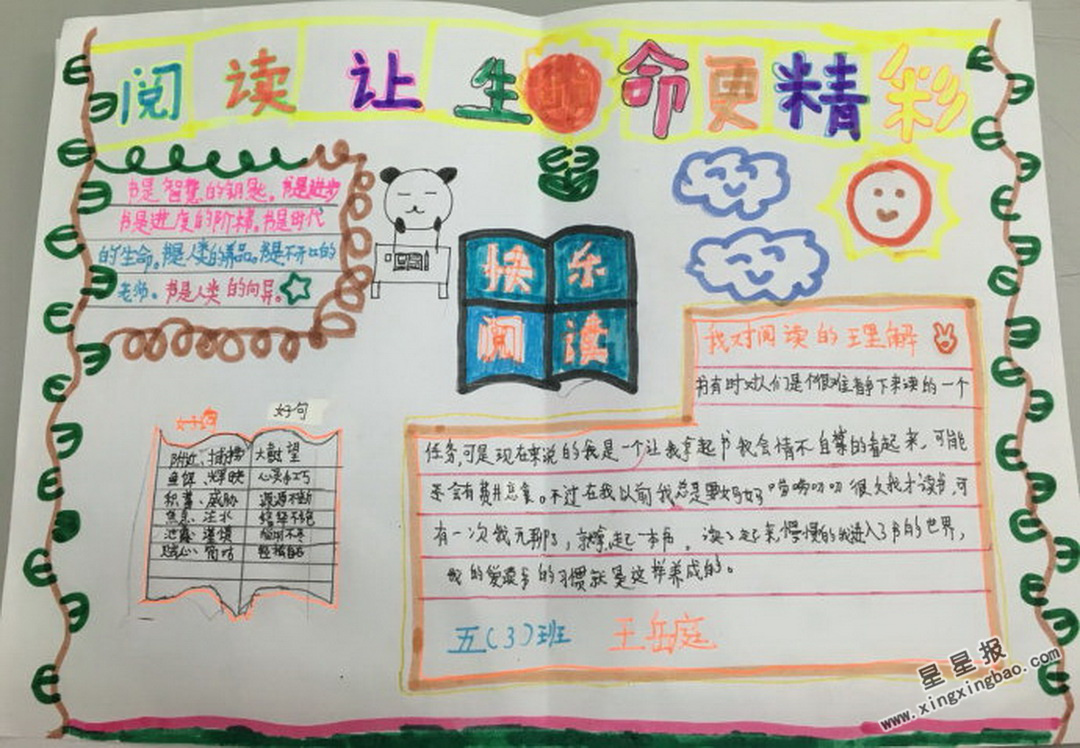 阅读让生命更精彩
书是智慧的钥匙。书是进步
书是进度的阶梯。书是时代
的生命。书是人类的养品。书是不开口的
老师。书是人类的向导。
快乐
阅读
好词
好句
附近、捕捞
大敲望
鱼饵、辉映
心灵手巧
积蓄、威胁
源源不断
我对阅读的理解
书有时对人们是个很难静下来读的一个
任务,可是现在来说的我是一个让我拿起书我会情不自禁的看起来,可能
还会有费井忘食。不过在我以前我总是要妈妈唠唠叨叨很久我才读书,可
有一次我无聊了,就拿起一本书,读了起来,慢慢的我进入了书的世界,
我的爱读书的习惯就是这样养成的。
五(3)班 王岳庭
星星报
www.xingxingbao.com